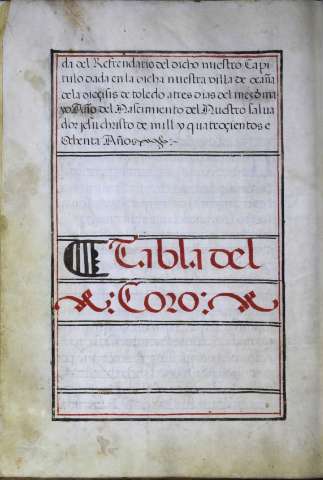 da del Refrendario del dicho nuestro Capi
tulo dada en la dicha nuestra villa de ocaña
dela dioçisis de toledo a tres dias del mes de ma
yo Año del Nascimiento del Nuestro salua
dor jesu christo de mill y quatroçientos e
Ochenta Años
Tabla del
:Coro: